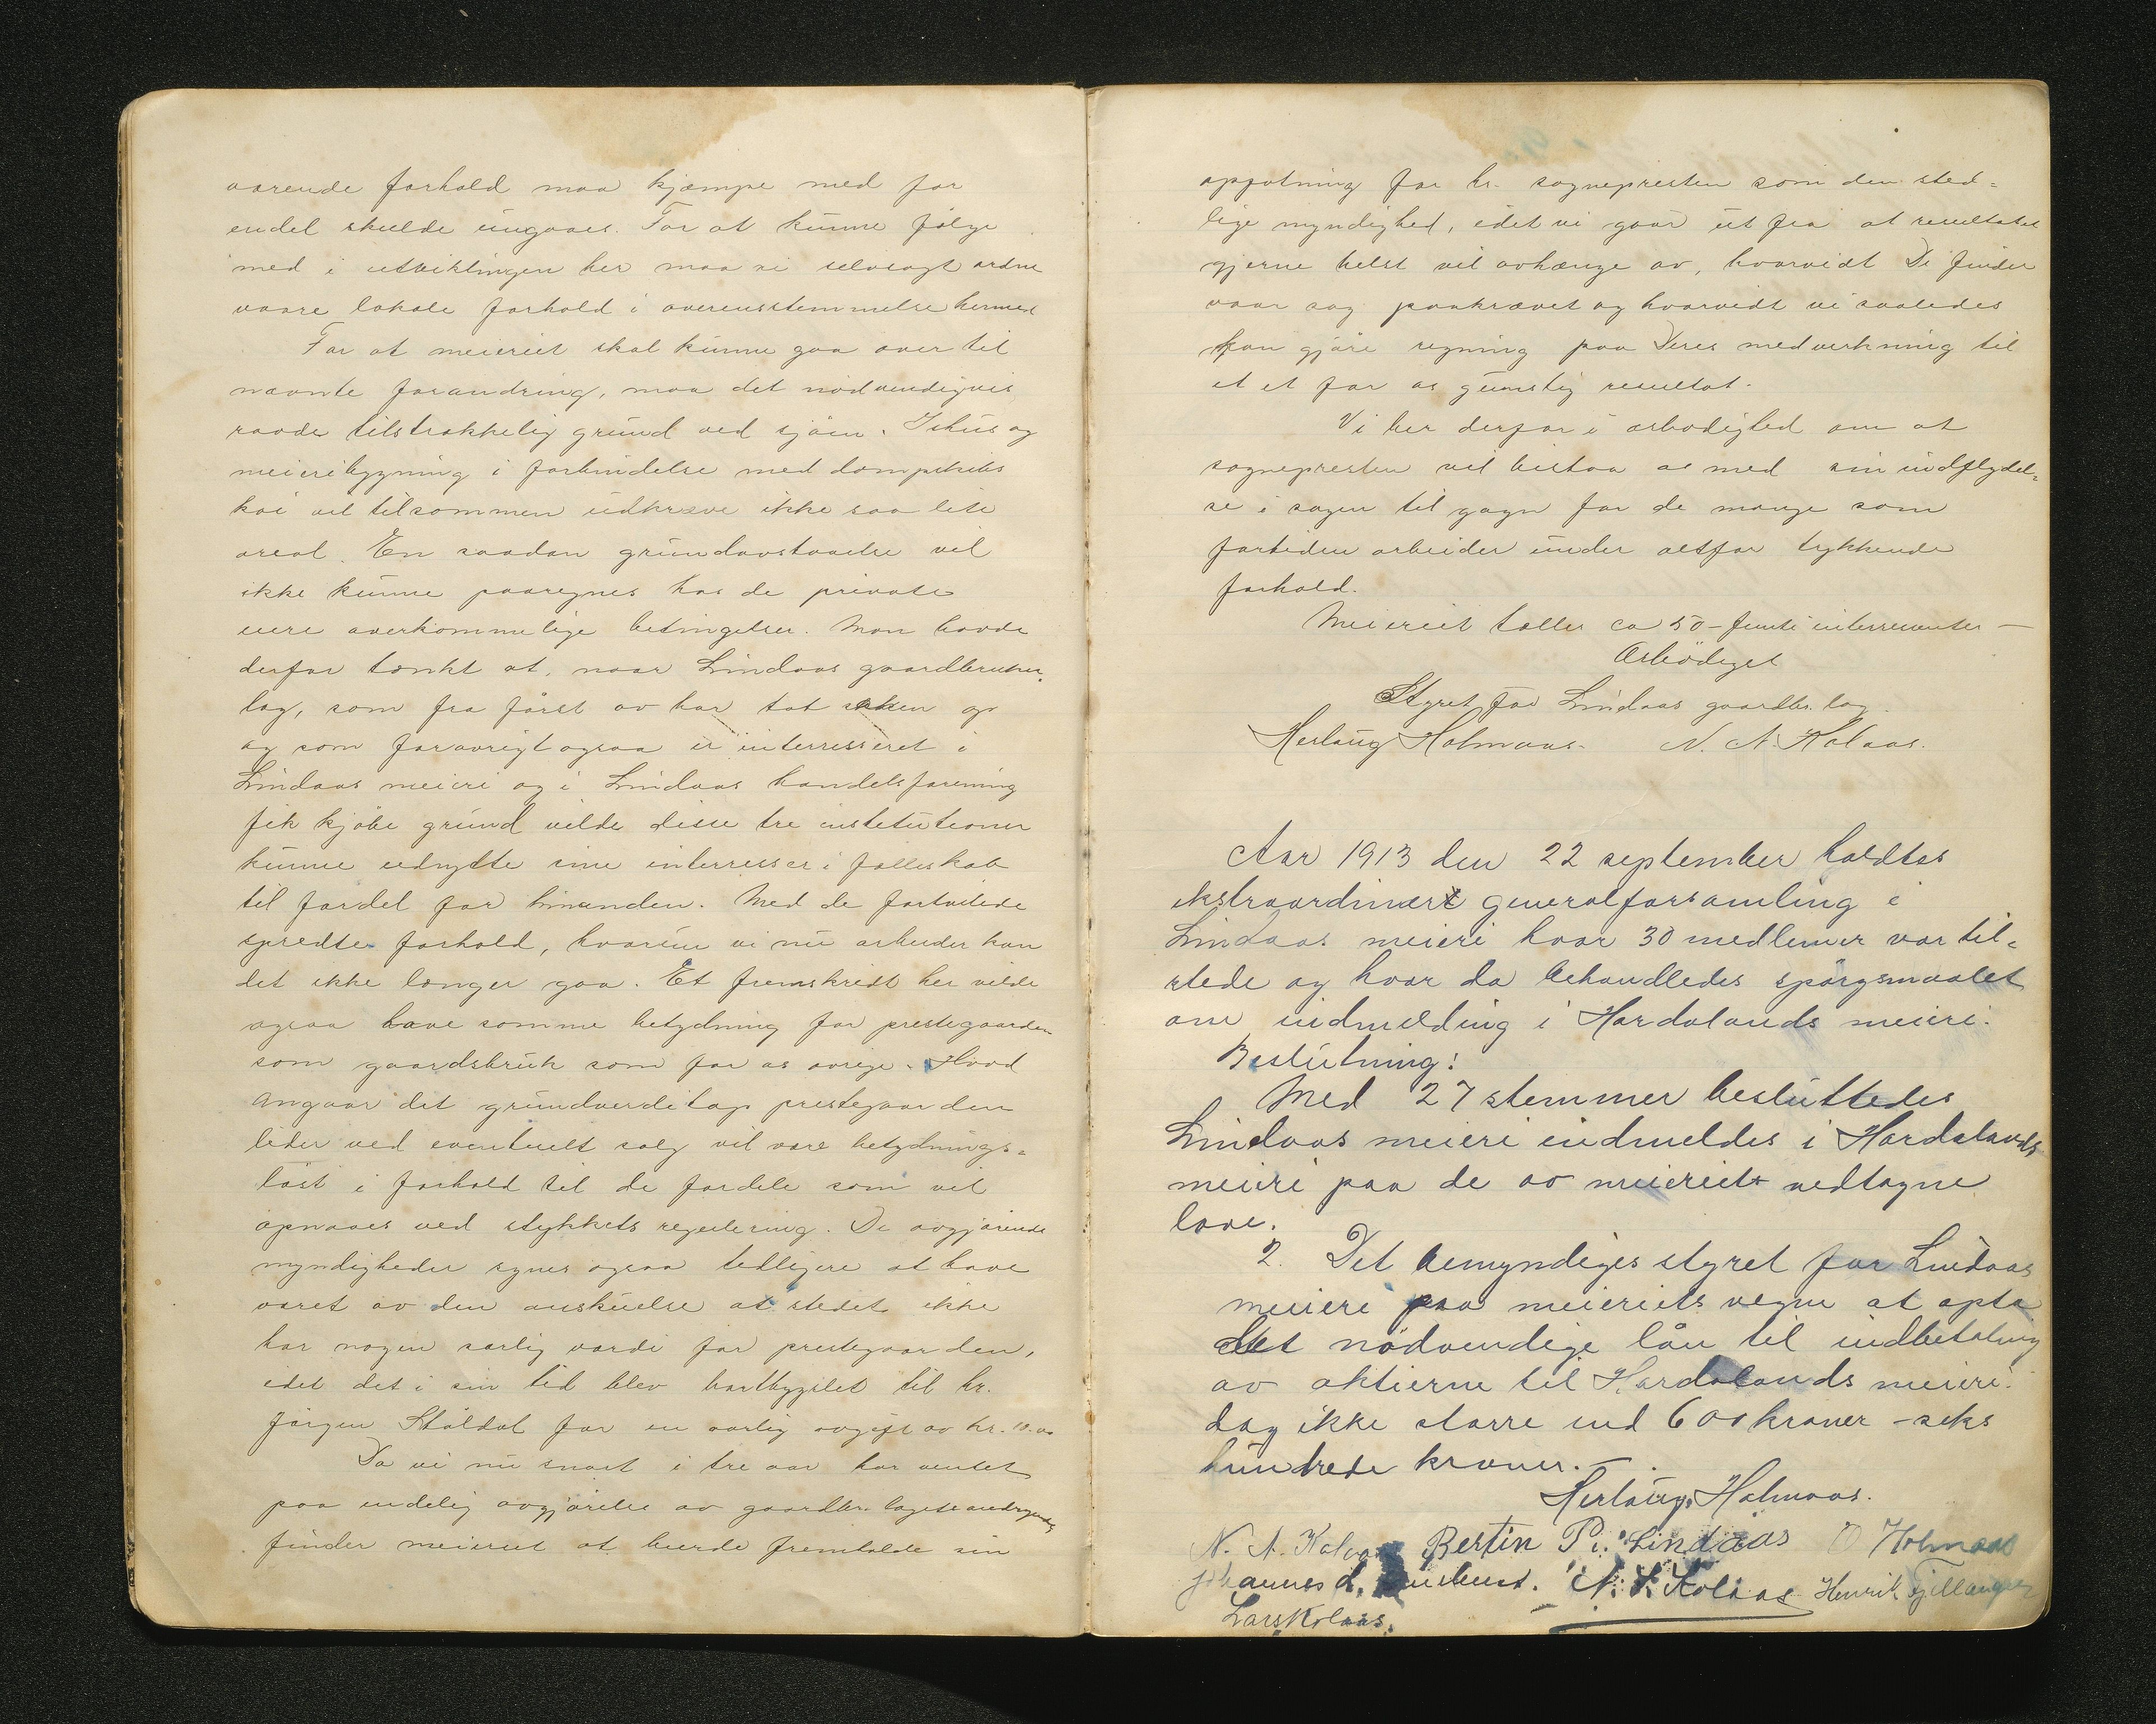 værende forhold maa kjæmpe med for
endel skulde ungaaes. For at kunne følge
med i utviklingen her maa vi selvsagt ordne
vaare lokale forhold i overensstemmelse hermed
For at meieriet skal kunne gaa over til
nævnte forandring, maa det nødvendigvis
raade tilstrækkelig grund ved sjøen. Ishus og
meieribygning i forbindelse med dampskibs
kai vil tilsammen udkræve ikke saa lite
areal. En saadan grundavstaaelse vil
ikke kunne paaregnes hos de private
eiere overkommelige betingelser. Man havde
derfor tænkt at, naar Lindaas gaardbruker
lag, som fra først av har tat saken op
og som forøvrigt ogsaa er interresseret i
Lindaas meieri og i Lindaas handelsforening
fik kjøbe grund vilde disse tre institutioner
kunne udnytte sine interresser i fælleskab
til fordel for hinanden. Med de fortvilede
spredte forhold, hvorum vi nu arbeider kan
det ikke længer gaa. Et fremskridt her vilde
ogsaa have samme betydning for prestegaarden
som gaardsbruk som for os øvrige. Hvad
angaar det grundværditap prestegaarden
lider ved eventuelt salg vil være betydnings=
løst i forhold til de fordele som vil
opnaaes ved stykkets regulering. De avgjørende
myndigheder synes ogsaa tidligere at have
været av den anskuelse at stedet ikke
har nogen særlig værdi for prestegaarden,
idet det i sin tid blev bortbygslet til hr.
Jørgen Ståldal for en aarlig avgift av kr. 10.00
Da vi nu snart i tre aar har ventet
paa endelig avgjørelse av gaardbr. lagets andragende
finder meieriet at burde fremholde sin
opfatning for hr. sognepresten som den sted=
lige myndighed, idet vi gaar ut fra at resultatet
gjerne helst vil avhænge av, hvorvidt De finder
vaar sag paakrævet og hvorvidt vi saaledes
kan gjøre regning paa Deres medverkning til
et et for os gunstig resultat.
Vi ber derfor i ærbødighed om at
sognepresten vil bistaa os med sin indflydel=
se i sagen til gagn for de mange som
fortiden arbeider under altfor trykkende
forhold.
Meieriet tæller ca 50 - femti interresenter —
Ærbødigst
Styret for Lindaas gaardbr. lag.
Herlaug Holmaas. N. A. Kolaas.
Aar 1913 den 22 september holdtes
ekstraordinært generalforsamling i
Lindaas meieri hvor 30 medlemer var til=
stede og hvor da behandledes spørgsmaalet
om indmelding i Hordalands meieri.
Beslutning:
Med 27 stemmer besluttedes
Lindaas meieri indmeldes i Hordalands
meieri paa de av meieriets vedtagne
love.
2. Det bemyndiges styret for Lindaas
meieri paa meieriets vegne at opta
det nødvendige lån til indbetaling
av aktierne til Hordalands meieri.
dog ikke større end 600 kroner - seks
hundrede kroner. —
Herlaug Holmaas.
N. A. Kolaas Bertin P. Lindaas O Holmaas
Johannes L. N. S. Kolaas Henrik Fjellanger
Lars Kolaas.